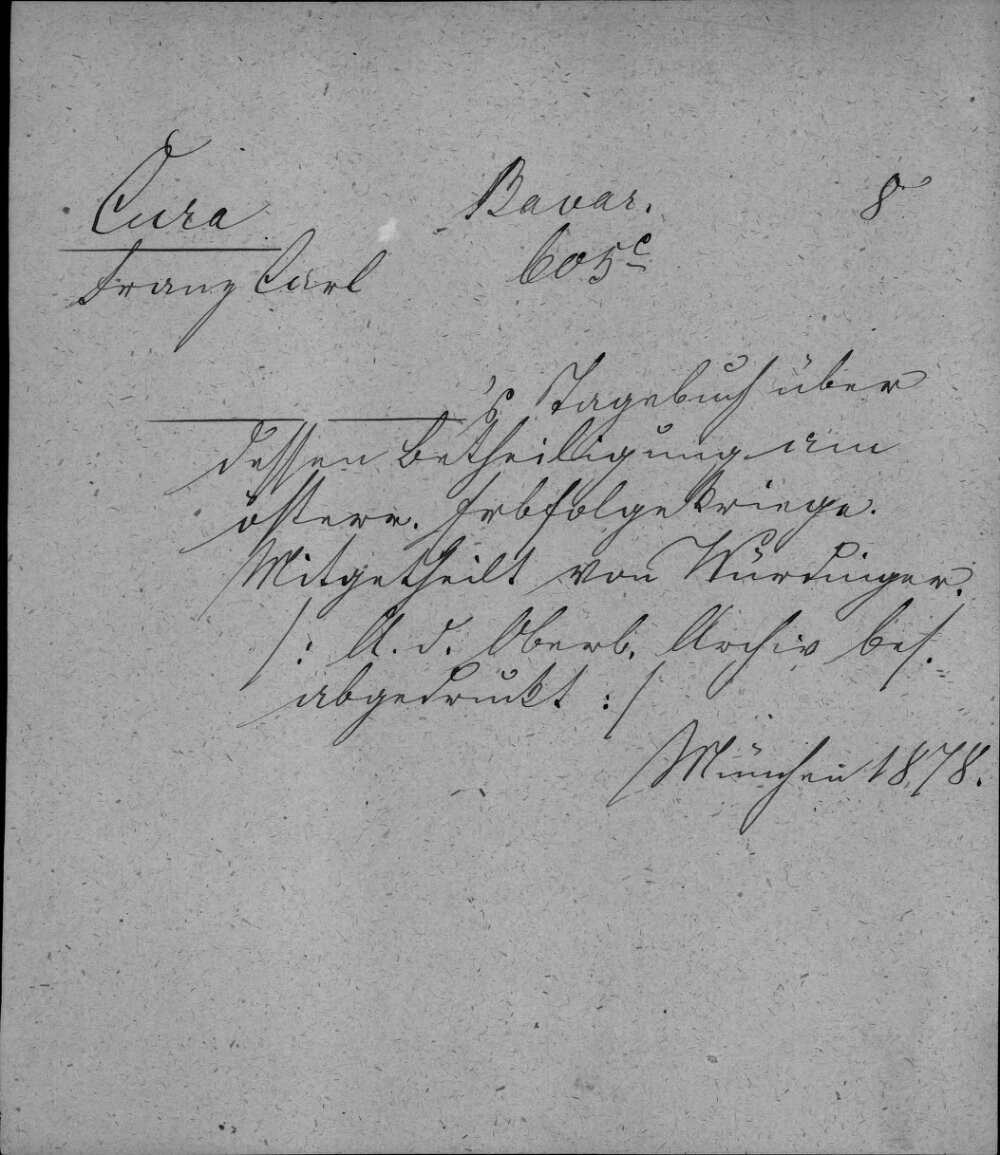 Cura Bavar. 8
Franz Carl 605c
— — 's Tagebuch über
dessen Betheiligung am
österr. Erbfolgekriege.
Mitgetheilt von Würdinger.
/: A. d. Oberb. Archiv bes.
abgedruckt :/
München 1878.